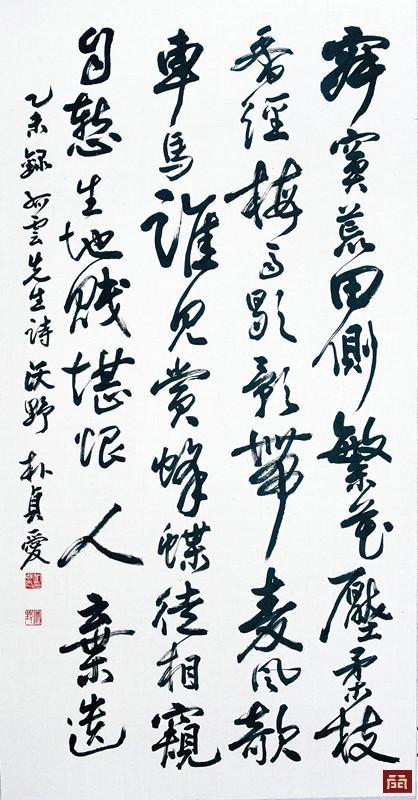 寂寞荒田側繁花壓柔枝
香經梅雨歇影帶麥風欹
車馬誰見賞蜂蝶徒相窺
自慙生地賤堪恨人棄遺
乙未錄孤雲先生詩沃野朴貞愛